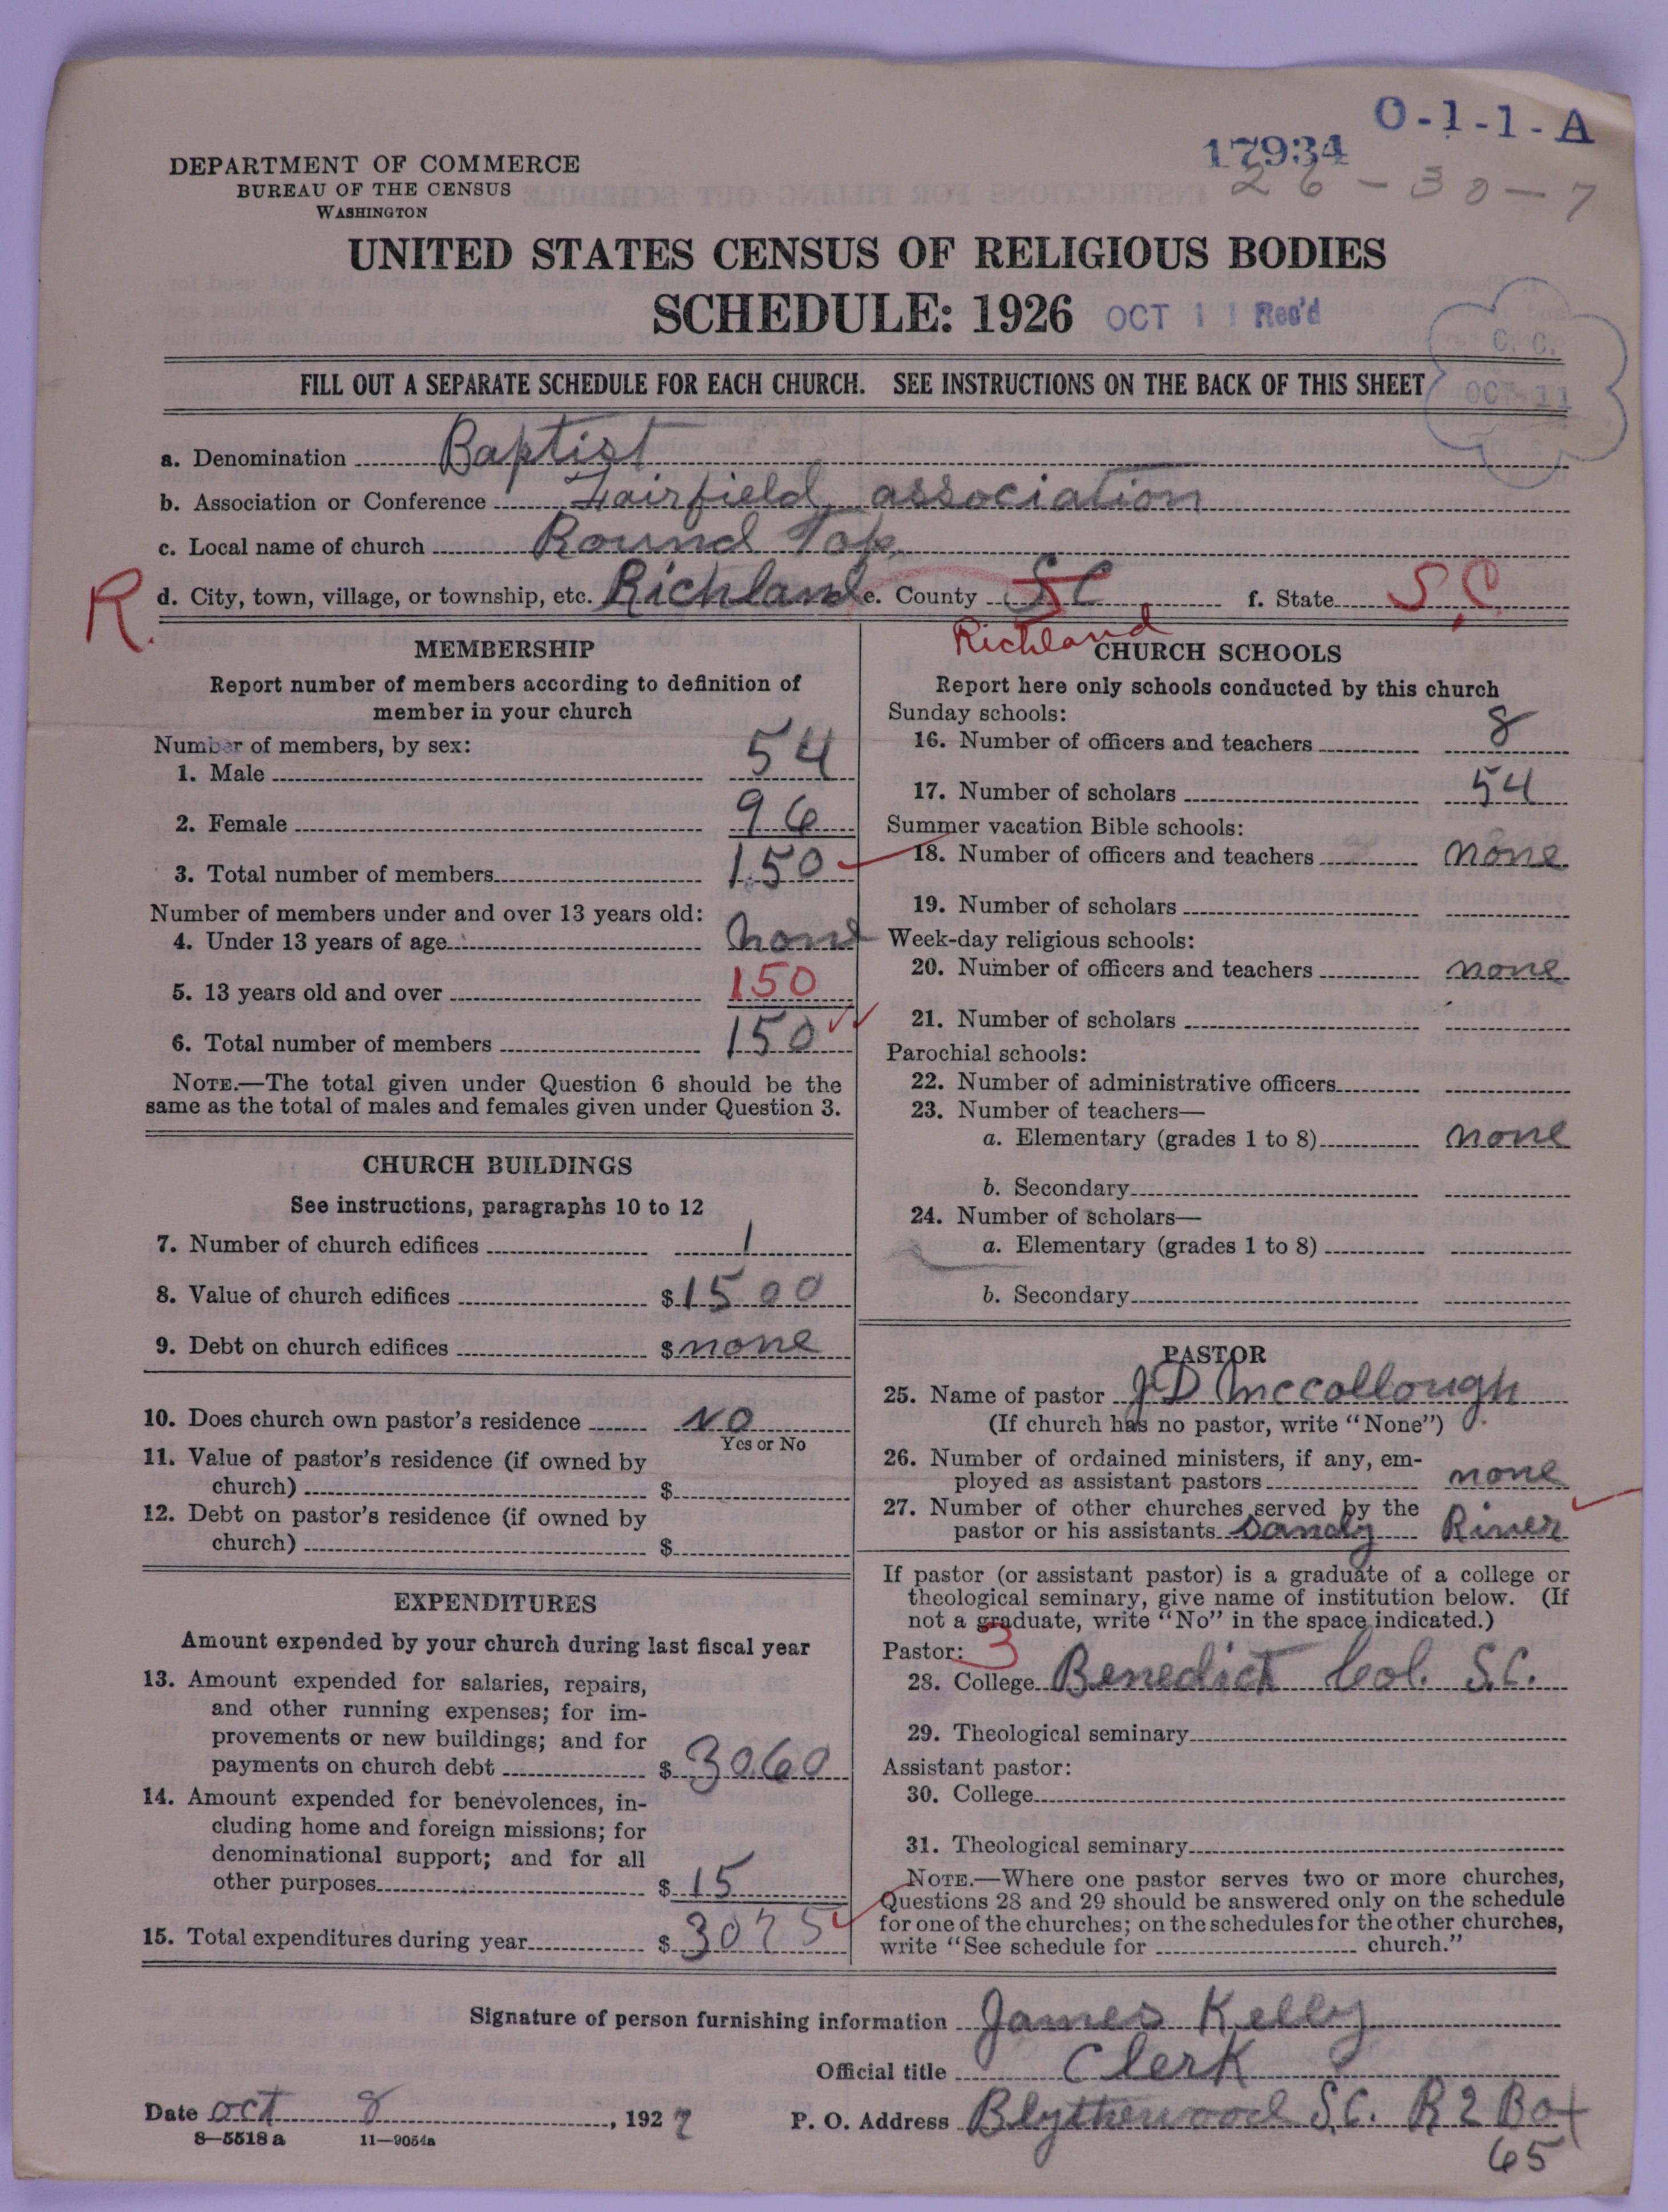 O-1-1-A
17934
26-30-7
DEPARTMENT OF COMMERCE
BUREAU OF THE CENSUS
WASHINGTON
UNITED STATES CENSUS OF RELIGIOUS BODIES
SCHEDULE: 1926 OCT 11 Rec'd
C. C.
OCT 11
FILL OUT A SEPARATE SCHEDULE FOR EACH CHURCH. SEE INSTRUCTIONS ON THE BACK OF THIS SHEET
a. Denomination Baptist
b. Association or Conference Fairfield association
c. Local name of church Round Top
R. d. City, town, village, or township, etc. Richland e. County SC f. State S.C.
Richland
MEMBERSHIP
Report number of members according to definition of
member in your church
Number of members, by sex:
1. Male 54
2. Female 96
3. Total number of members 150
Number of members under and over 13 years old:
4. Under 13 years of age none
5. 13 years old and over 150
6. Total number of members 150
NOTE.—The total given under Question 6 should be the
same as the total of males and females given under Question 3.
CHURCH BUILDINGS
See instructions, paragraphs 10 to 12
7. Number of church edifices 1
8. Value of church edifices $1500
9. Debt on church edifices $none
10. Does church own pastor's residence NO
Yes or No
11. Value of pastor's residence (if owned by
church) $
12. Debt on pastor's residence (if owned by
church) $
EXPENDITURES
Amount expended by your church during last fiscal year
13. Amount expended for salaries, repairs,
and other running expenses; for im-
provements or new buildings; and for
payments on church debt $3060
14. Amount expended for benevolences, in-
cluding home and foreign missions; for
denominational support; and for all
other purposes $15
15. Total expenditures during year $3075
CHURCH SCHOOLS
Report here only schools conducted by this church
Sunday schools:
16. Number of officers and teachers 8
17. Number of scholars 54
Summer vacation Bible schools:
18. Number of officers and teachers none
19. Number of scholars
Week-day religious schools:
20. Number of officers and teachers none
21. Number of scholars
Parochial schools:
22. Number of administrative officers
23. Number of teachers—
a. Elementary (grades 1 to 8) none
b. Secondary
24. Number of scholars—
a. Elementary (grades 1 to 8)
b. Secondary
PASTOR
25. Name of pastor J D McCollough
(If church has no pastor, write "None")
26. Number of ordained ministers, if any, em-
ployed as assistant pastors none
27. Number of other churches served by the
pastor or his assistants Sandy River
If pastor (or assistant pastor) is a graduate of a college or
theological seminary, give name of institution below. (If
not a graduate, write "No" in the space indicated.)
Pastor: 3
28. College Benedict Col. S.C.
29. Theological seminary
Assistant pastor:
30. College
31. Theological seminary
NOTE.—Where one pastor serves two or more churches,
Questions 28 and 29 should be answered only on the schedule
for one of the churches; on the schedules for the other churches,
write "See schedule for church."
Signature of person furnishing information James Kelly
Official title Clerk
Date oct 8, 1927 P. O. Address Blythewood S.C. R 2 Box
65
8—5518 a 11—9054a